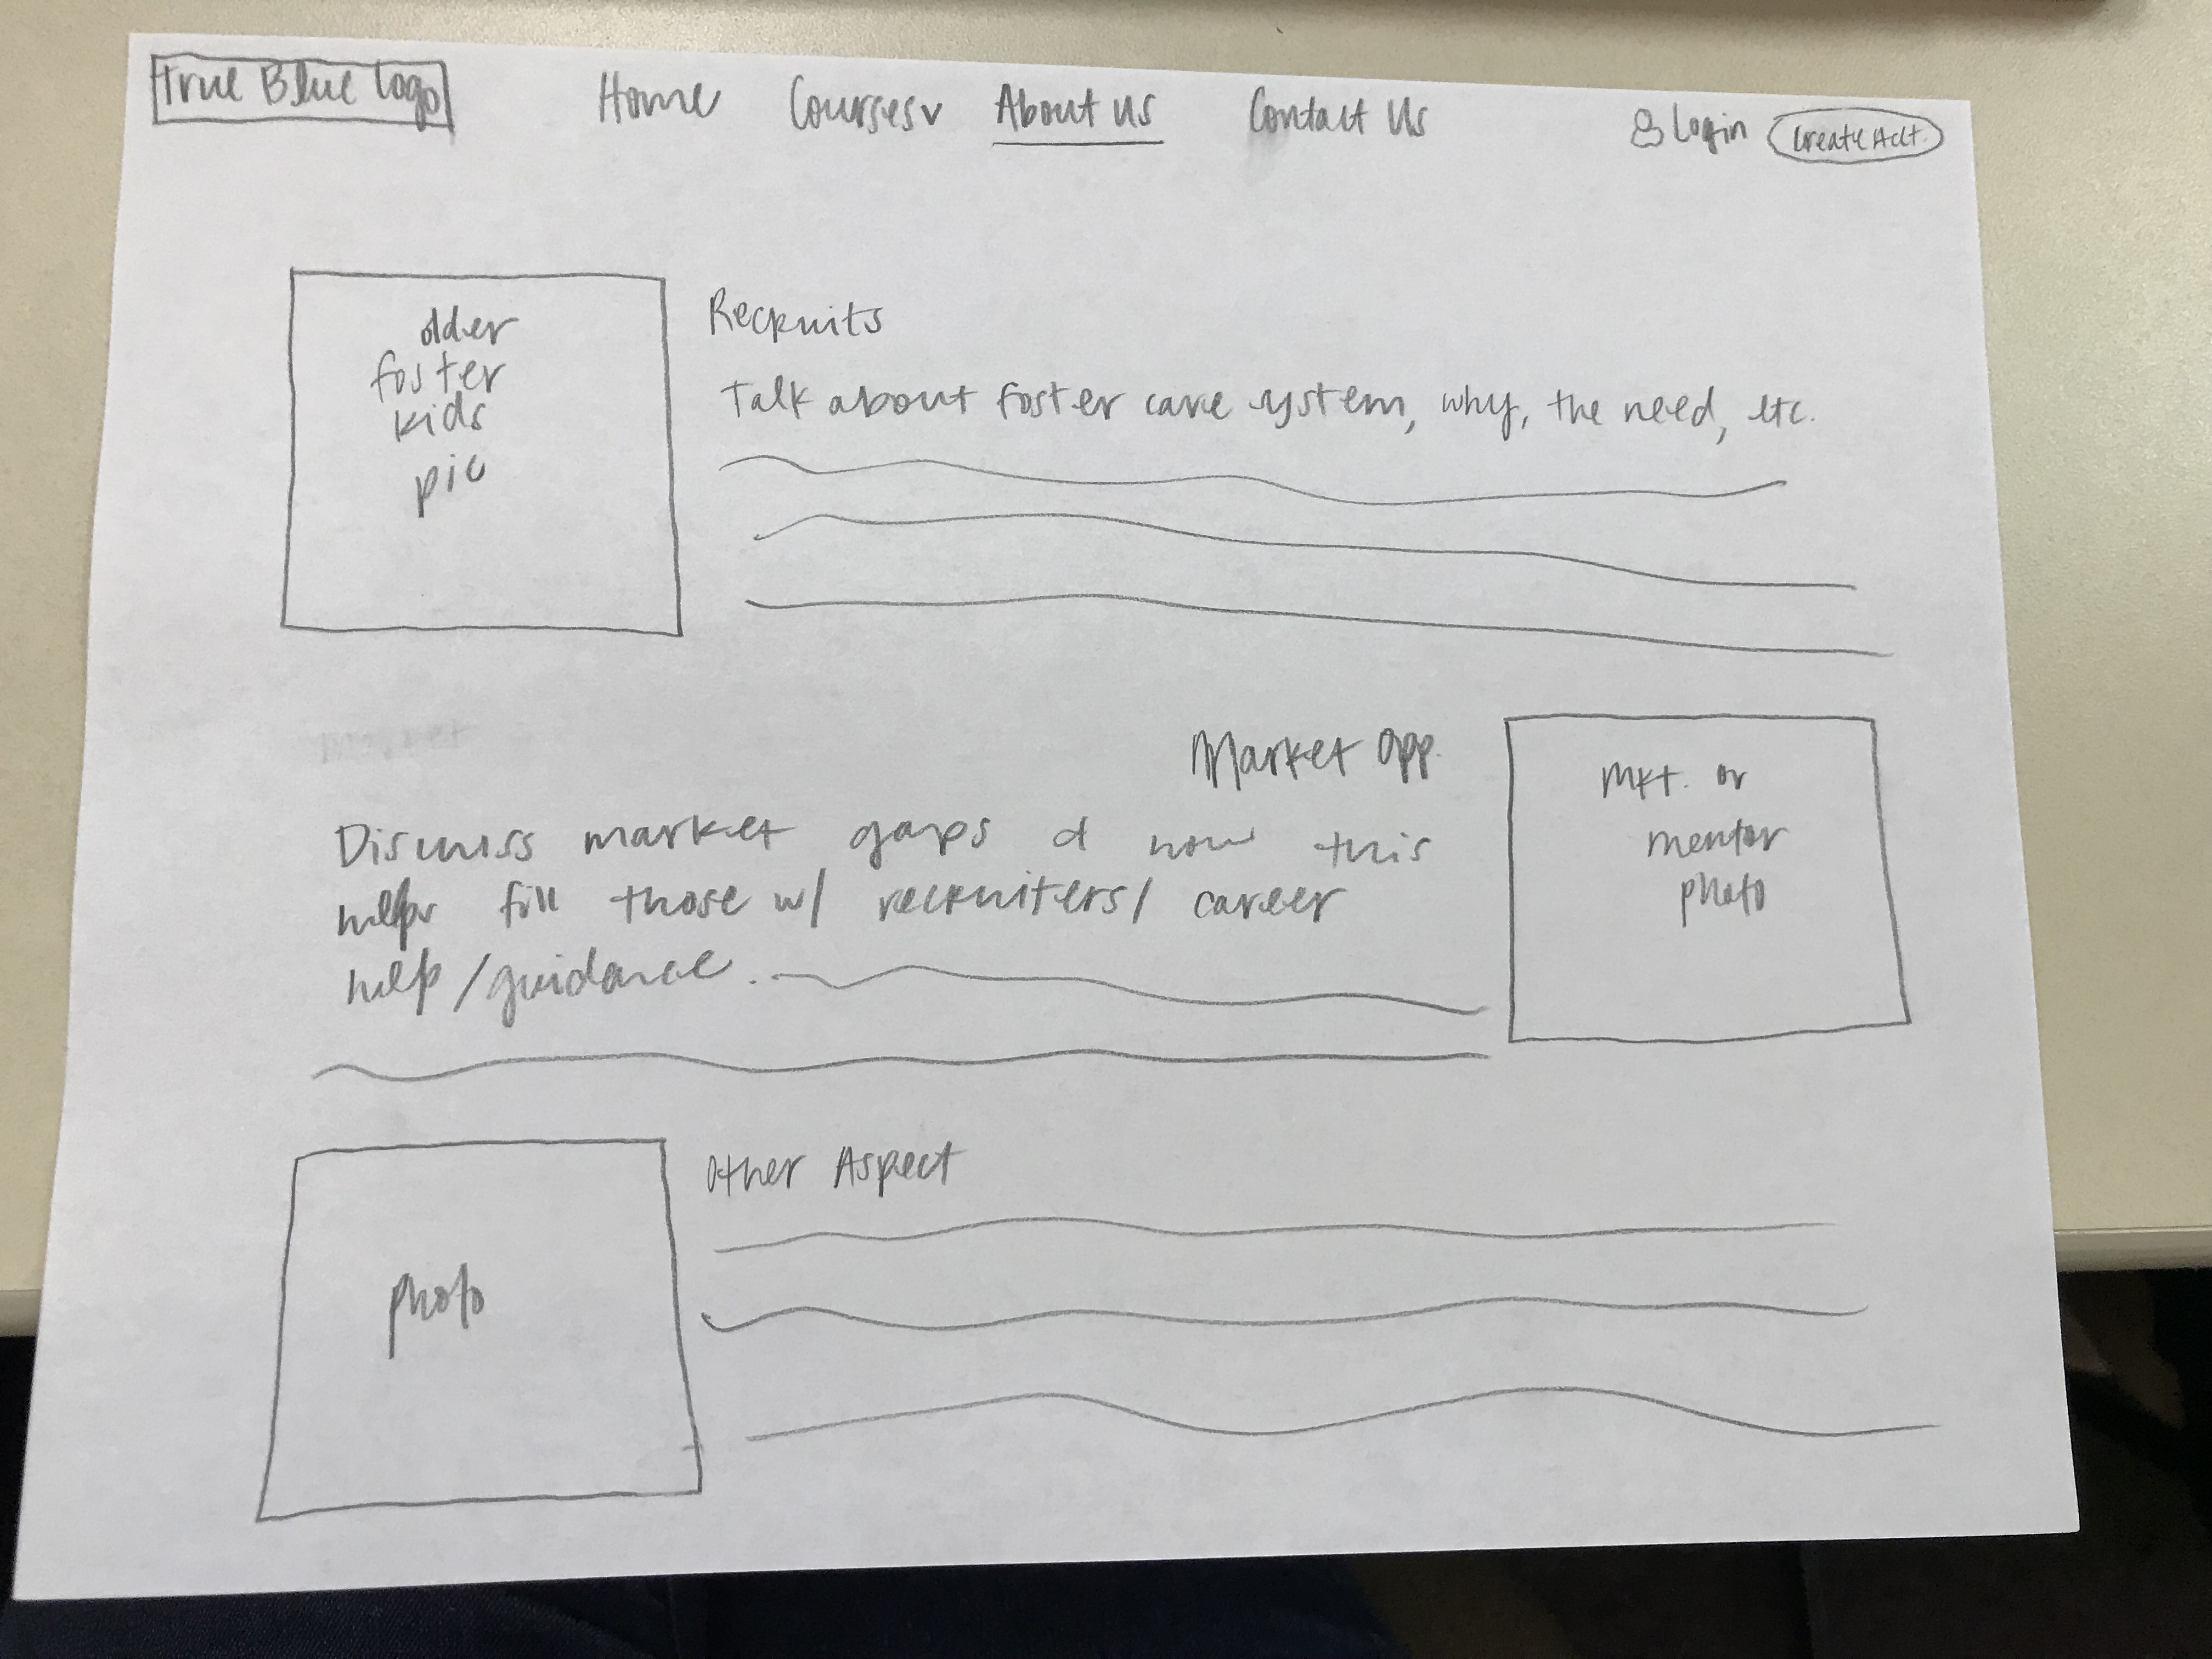 True Blue Logo Home Courses v About Us Contact Us Login Create Acct.
older
foster
kids
pic
Recruits
Talk about foster care system, why, the need, etc.
Market Opp.
Discuss market gaps & how this
helps fill those w/ recruiters/career
help/guidance.
mkt. or
mentor
photo
photo
Other Aspect